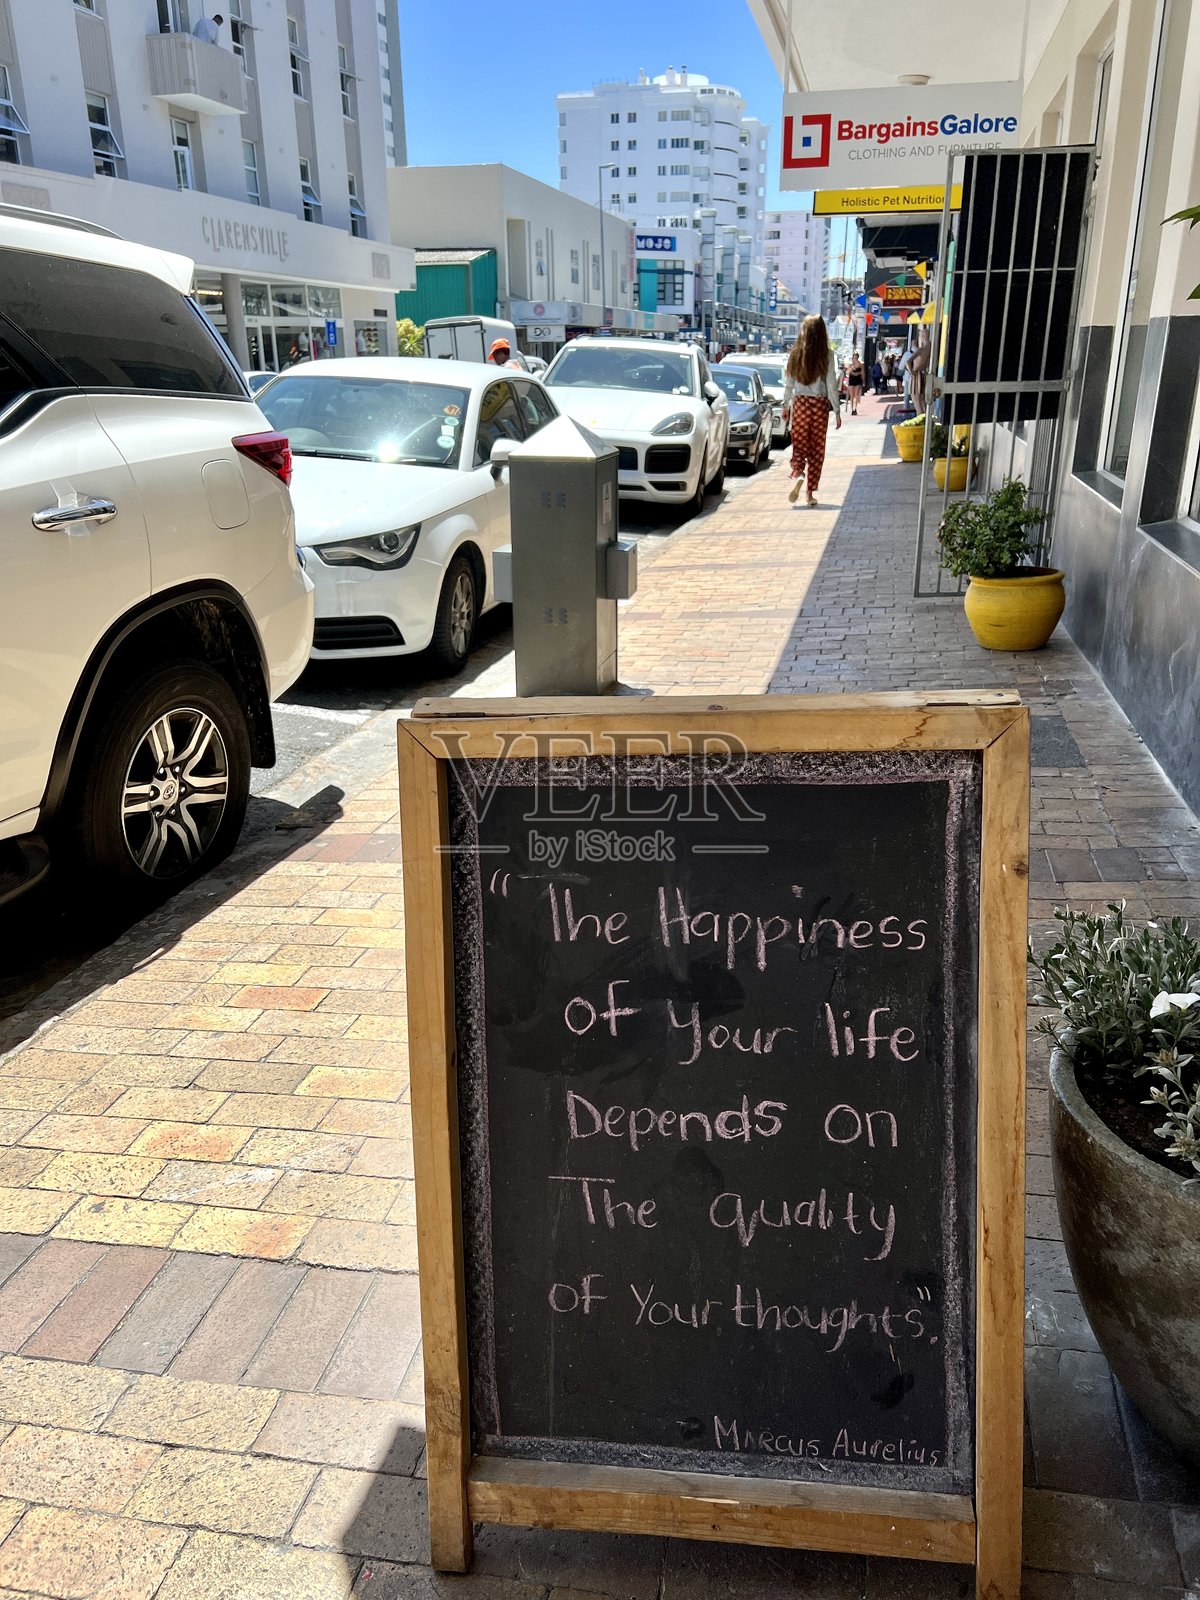 CLARENSVILLE
BargainsGalore
CLOTHING AND FURNITURE
Holistic Pet Nutrition
MOJO
VEER
by iStock
“The Happiness
of your life
Depends on
The quality
of Your thoughts”.
Marcus Aurelius